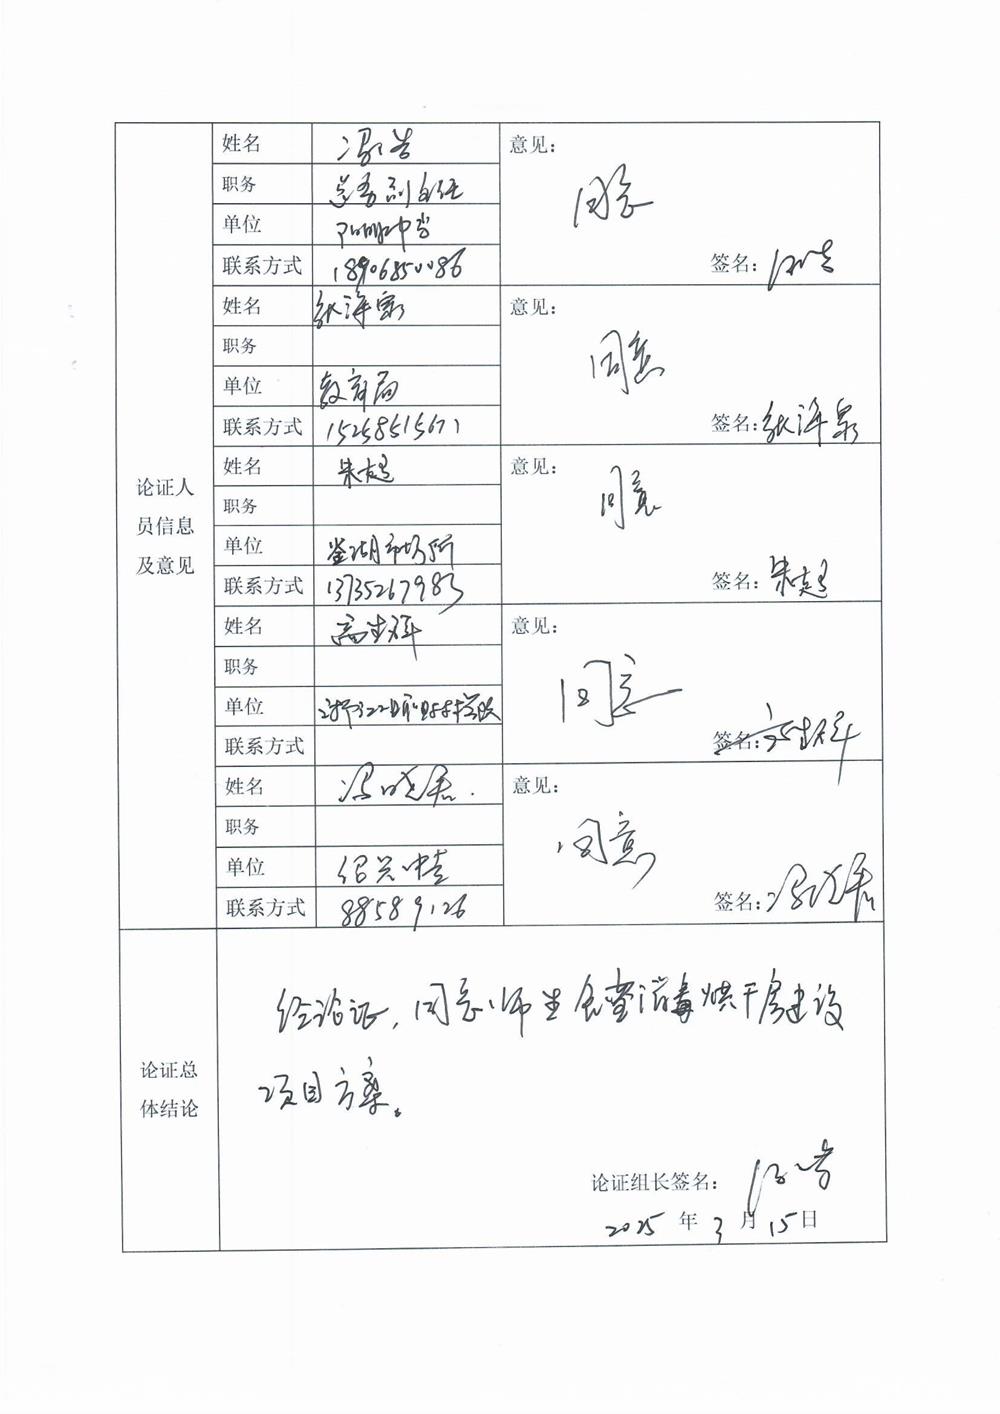 论证人
员信息
及意见
姓名 冯浩
职务 总务副主任
单位 阳明中学
联系方式 18906850086
意见：
同意
签名：冯浩
姓名 张泽泉
职务
单位 教育局
联系方式 15258515671
意见：
同意
签名：张泽泉
姓名 朱志
职务
单位 鉴湖市场所
联系方式 13735267983
意见：
同意
签名：朱志
姓名 高生祥
职务
单位 浙江工业职业技术学院
联系方式
意见：
同意
签名：高生祥
姓名 冯晓君
职务
单位 绍兴中专
联系方式 88589126
意见：
同意
签名：冯晓君
论证总
体结论
经论证，同意师生食堂消毒烘干房建设
项目方案。
论证组长签名：冯浩
2025 年 3 月 15 日